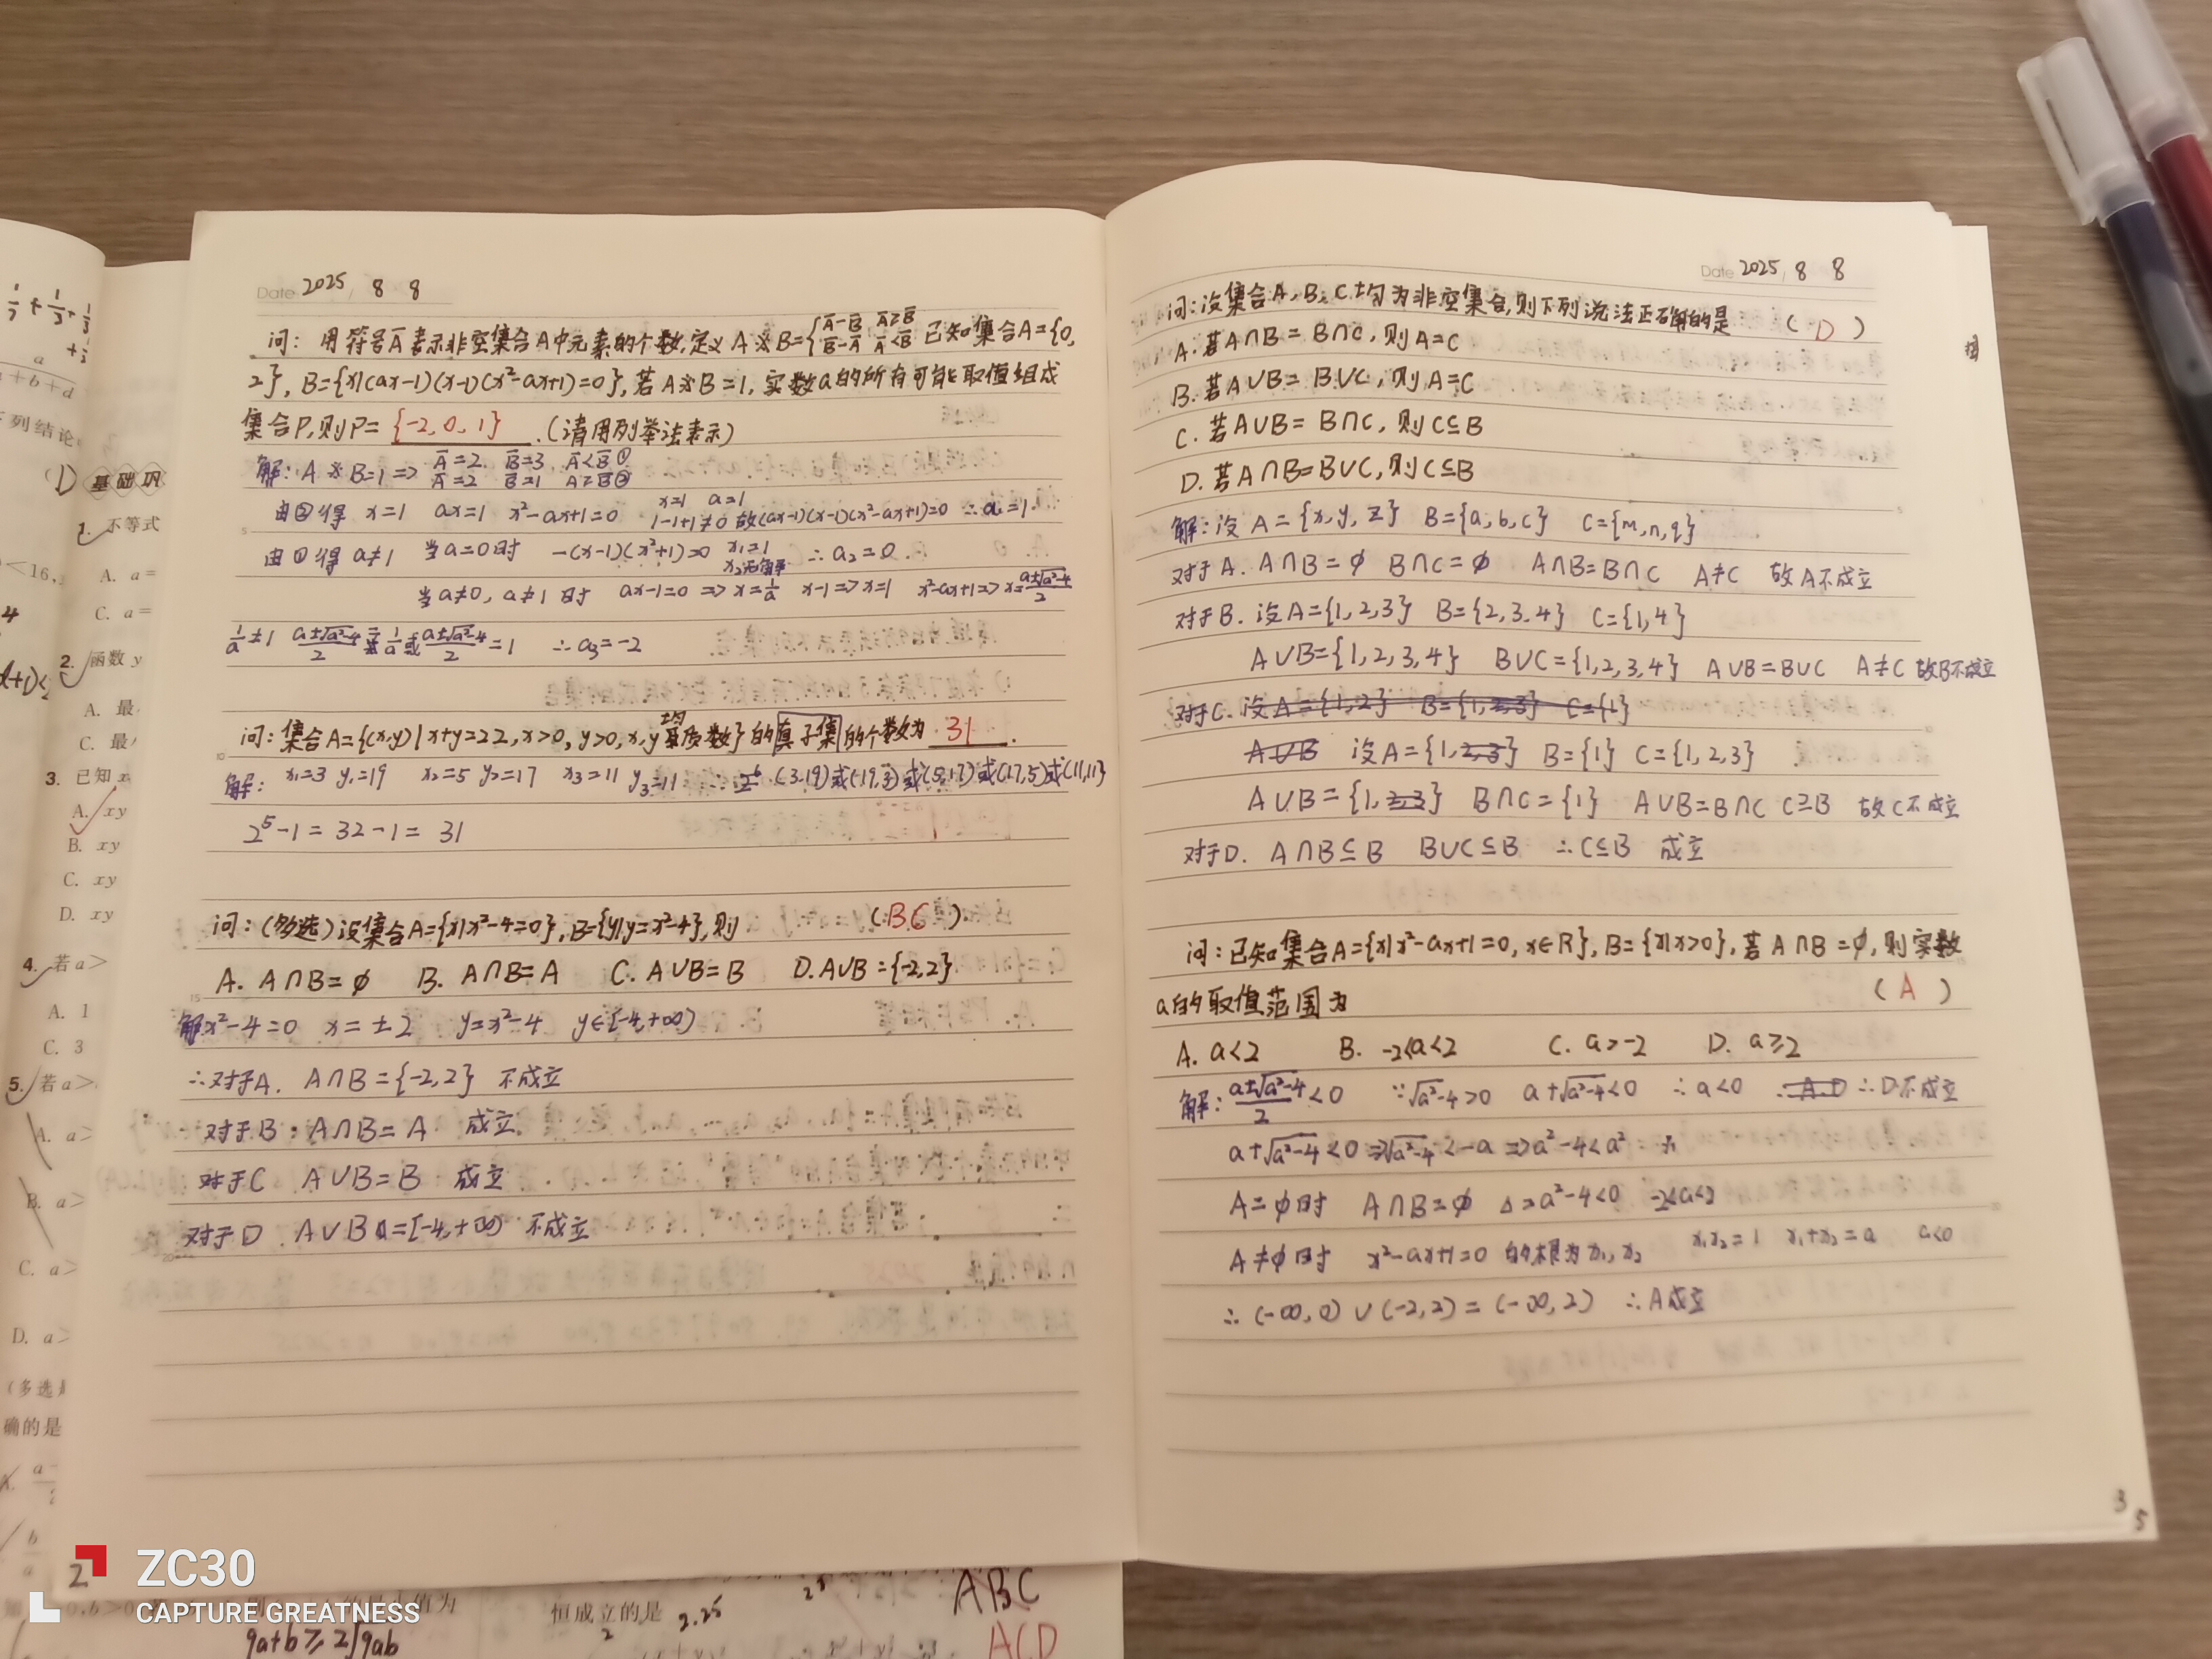 Date 2025 / 8 8
问: 用符号A̅表示非空集合A中元素的个数,定义A※B={A̅-B̅ A̅≥B̅
B̅-A̅ A̅<B̅ 已知集合A={0,
2}, B={x|(ax-1)(x-1)(x²-ax+1)=0},若A※B=1,实数a的所有可能取值组成
集合P,则P= {-2, 0, 1} .(请用列举法表示)
解: A※B=1=> A̅=2. B̅=3. A̅<B̅ ①
A̅=2 B̅=1 A̅≥B̅ ②
由②得 x=1 ax=1 x²-ax+1=0 x=1 a=1
1-1+1≠0 故(ax-1)(x-1)(x²-ax+1)=0 ∴a₁=1.
由①得 a≠1 当a=0时 -(x-1)(x²+1)=0 x₁=1
x₂无解 ∴a₂=0.
当a≠0, a≠1时 ax-1=0 => x=1/a x-1=>x=1 x²-ax+1=>x=(a±√a²-4)/2
1/a≠1 (a±√a²-4)/2 = 1/a 或 (a±√a²-4)/2 =1 ∴a₃=-2
问:集合A={(x,y)|x+y=22,x>0,y>0,x,y均是质数}的真子集的个数为 31 .
解: x₁=3 y₁=19 x₂=5 y₂=17 x₃=11 y₃=11 ∴ 2⁶ (3,19)或(19,3)或(5,17)或(17,5)或(11,11)
2⁵-1=32-1=31
问:(多选)设集合A={x|x²-4=0},B={y|y=x²-4},则 (BC)
A. A∩B=∅ B. A∩B=A C. A∪B=B D. A∪B={-2,2}
解x²-4=0 x=±2 y=x²-4 y∈[-4,+∞)
∴对于A. A∩B={-2,2} 不成立
对于B: A∩B=A 成立
对于C A∪B=B 成立
对于D. A∪B=[-4,+∞) 不成立
Date 2025 / 8 8
问:设集合A,B,C均为非空集合,则下列说法正确的是 (D)
A.若A∩B=B∩C,则A=C
B.若A∪B=B∪C,则A=C
C.若A∪B=B∩C,则C⊆B
D.若A∩B=B∪C,则C⊆B
解:设A={x,y,z} B={a,b,c} C={m,n,q}
对于A. A∩B=∅ B∩C=∅ A∩B=B∩C A≠C 故A不成立
对于B. 设A={1,2,3} B={2,3,4} C={1,4}
A∪B={1,2,3,4} B∪C={1,2,3,4} A∪B=B∪C A≠C 故B不成立
对于C. 设A={1,2} B={1,2,3} C={1}
A∪B 设A={1,2,3} B={1} C={1,2,3}
A∪B={1,2,3} B∩C={1} A∪B=B∩C C⊇B 故C不成立
对于D. A∩B⊆B B∪C⊆B ∴C⊆B 成立
问:已知集合A={x|x²-ax+1=0,x∈R},B={x|x>0},若A∩B=∅,则实数
a的取值范围为 (A)
A. a<2 B. -2<a<2 C. a>-2 D. a≥2
解: (a±√a²-4)/2<0 ∵√a²-4>0 a+√a²-4<0 ∴a<0 ∴A.D ∴D不成立
a+√a²-4<0=>√a²-4<-a=>a²-4<a²
A=∅时 A∩B=∅ Δ=a²-4<0 -2<a<2
A≠∅时 x²-ax+1=0的根为x₁,x₂ x₁x₂=1 x₁+x₂=a a<0
∴(-∞,0)∪(-2,2)=(-∞,2) ∴A成立
3
5
1/7+1/3+
a
a+b+d
下列结论
基础巩
1. 不等式
<16,
A. a=
C. a=
2. 函数y
A. 最
C. 最
3. 已知x
A. xy
B. xy
C. xy
D. xy
4. 若a>
A. 1
C. 3
5. 若a>
A. a>
B. a>
C. a>
D. a>
(多选
确的是
2
恒成立的是 2.25
2
9a+b≥2√9ab
ABC
ACD
ZC30
CAPTURE GREATNESS